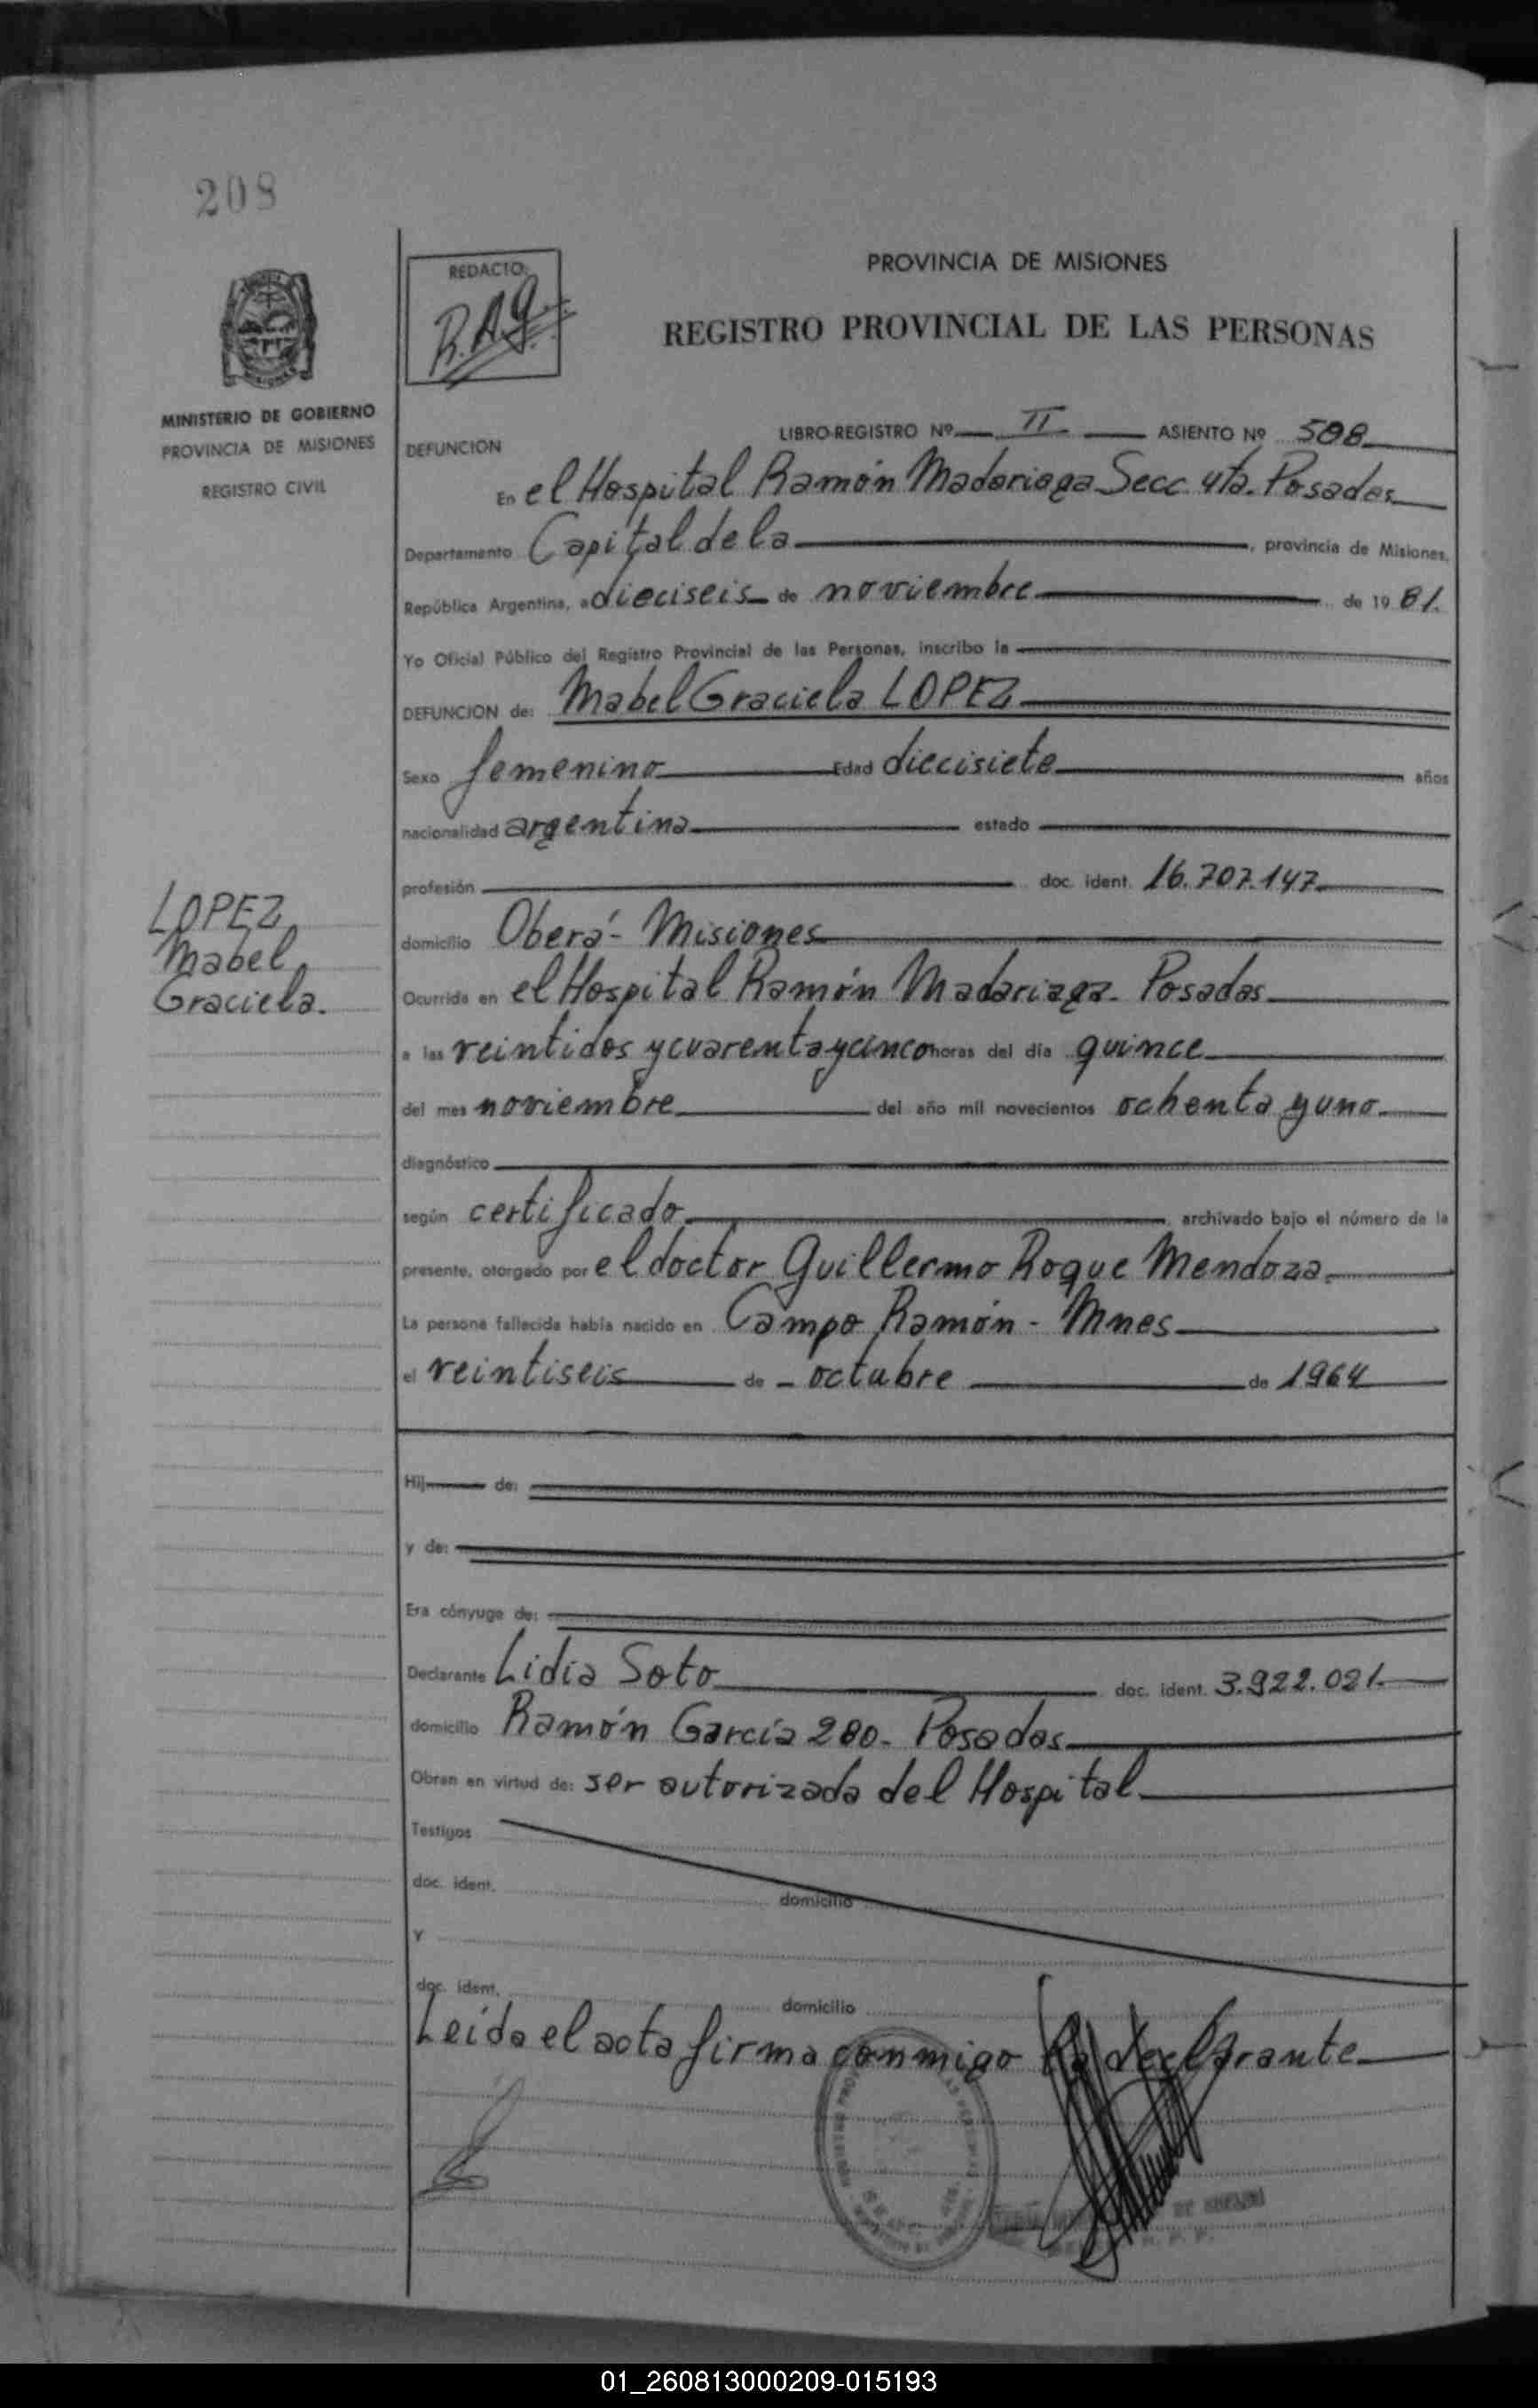 208
REDACTO.
R.A.G.
PROVINCIA DE MISIONES
REGISTRO PROVINCIAL DE LAS PERSONAS
MINISTERIO DE GOBIERNO
PROVINCIA DE MISIONES
REGISTRO CIVIL
LIBRO-REGISTRO Nº II ASIENTO Nº 588
DEFUNCION
En el Hospital Ramón Madariaga Secc. 4ta. Posadas
Departamento Capital de la , provincia de Misiones,
República Argentina, a dieciseis de noviembre de 19 81.
Yo Oficial Público del Registro Provincial de las Personas, inscribo la
DEFUNCION de: Mabel Graciela LOPEZ
Sexo femenino Edad diecisiete años
nacionalidad argentina estado
profesión doc. ident. 16.707.147
LOPEZ,
Mabel
Graciela.
domicilio Oberá - Misiones
Ocurrida en el Hospital Ramón Madariaga - Posadas
a las veintidos y cuarenta y cinco horas del día quince
del mes noviembre del año mil novecientos ochenta y uno
diagnóstico
según certificado , archivado bajo el número de la
presente, otorgado por el doctor Guillermo Roque Mendoza.
La persona fallecida había nacido en Campo Ramón - Mnes
el veintiseis de - octubre de 1964
Hij de:
y de:
Era cónyuge de:
Declarante Lidia Soto doc. ident. 3.922.021.
domicilio Ramón García 280 - Posadas
Obran en virtud de: ser autorizada del Hospital
Testigos
doc. ident. domicilio
Y
doc. ident. domicilio
Leída el acta firma conmigo la declarante
01_260813000209-015193